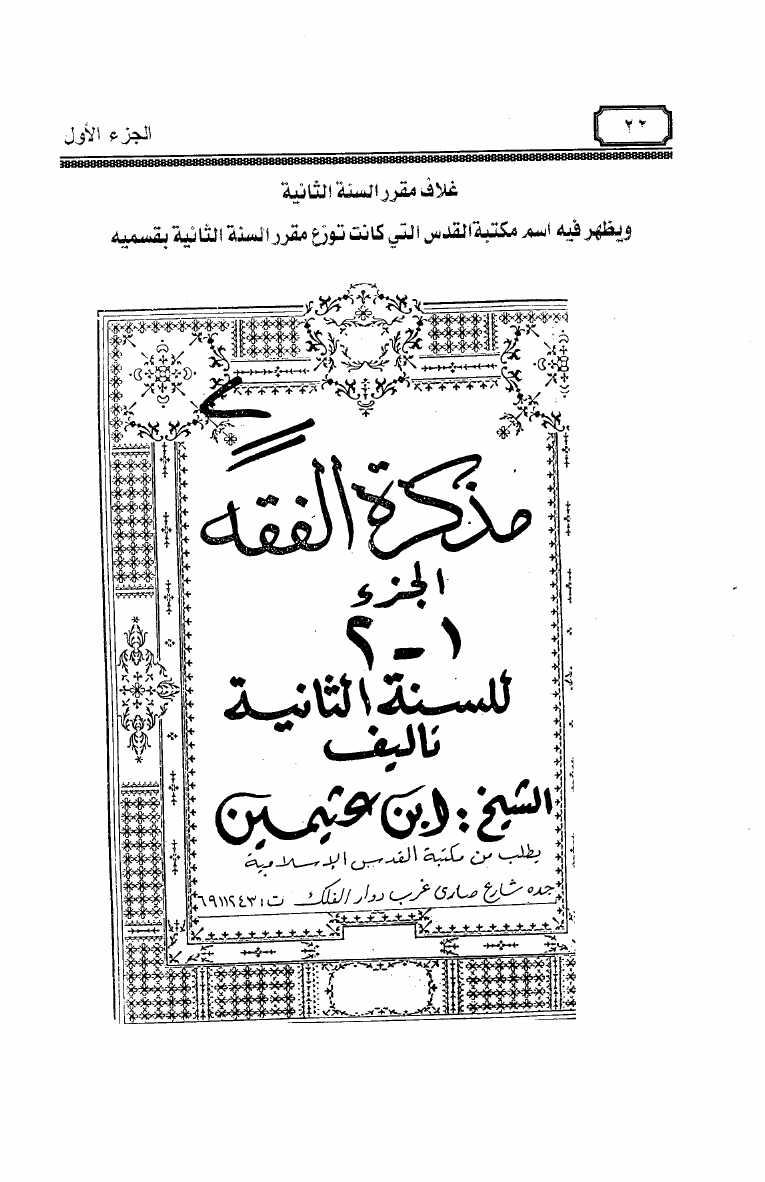 ٢٢
الجزء الأول
غلاف مقرر السنة الثانية
ويظهر فيه اسم مكتبة القدس التي كانت توزع مقرر السنة الثانية بقسميه
مذكرة الفقه
الجزء
١ - ٢
للسنة الثانية
تاليف
الشيخ : ابن عثيمين
يطلب من مكتبة القدس الإسلامية
جده شارع صارى غرب دوار الفلك ت : ٦٩١١٢٤٣